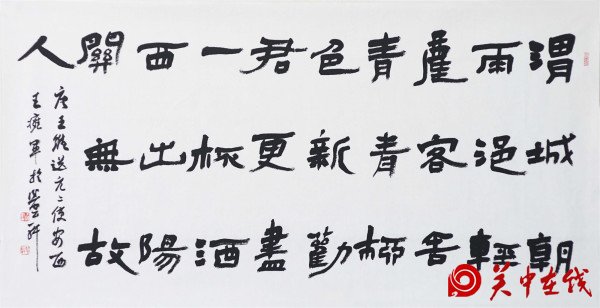 渭城朝
雨浥輕
塵客舍
青青柳
色新勸
君更盡
一杯酒
西出陽
關無故
人
唐王維送元二使安西
王擁軍於軒
关中在线